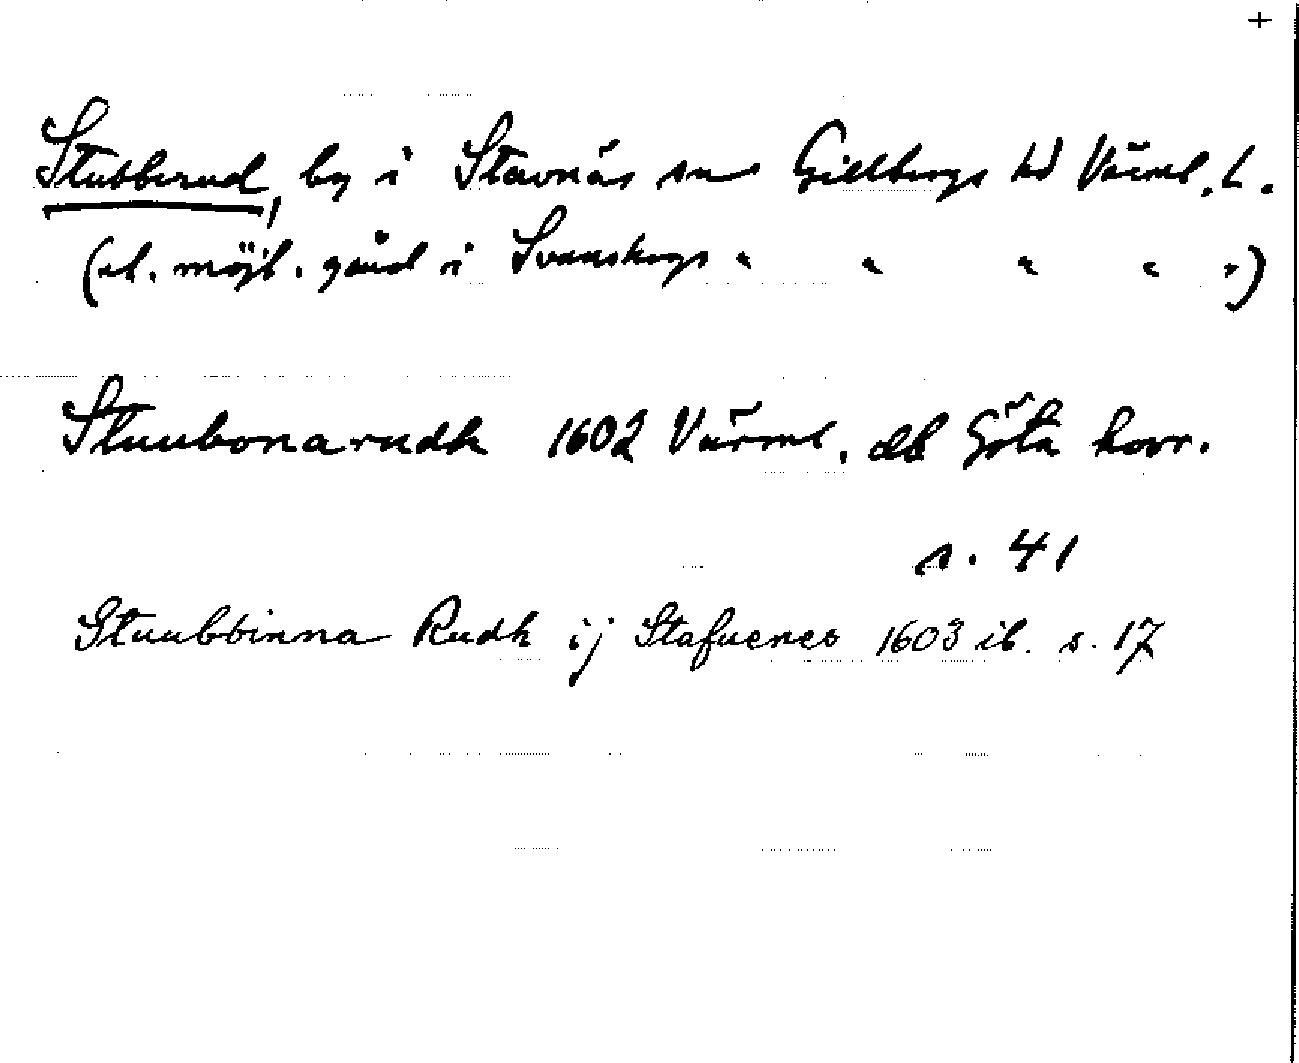 +
Stubberud, by i Stavnäs sn Gillbergs hd Värml. l.
(el. möjl. gård i Svanskogs " " " " ")
Stuubonarudh 1602 Värml. db Göta hovr.
s. 41
Stuubbinna Rudh ij Stafuenes 1603 ib. s. 17